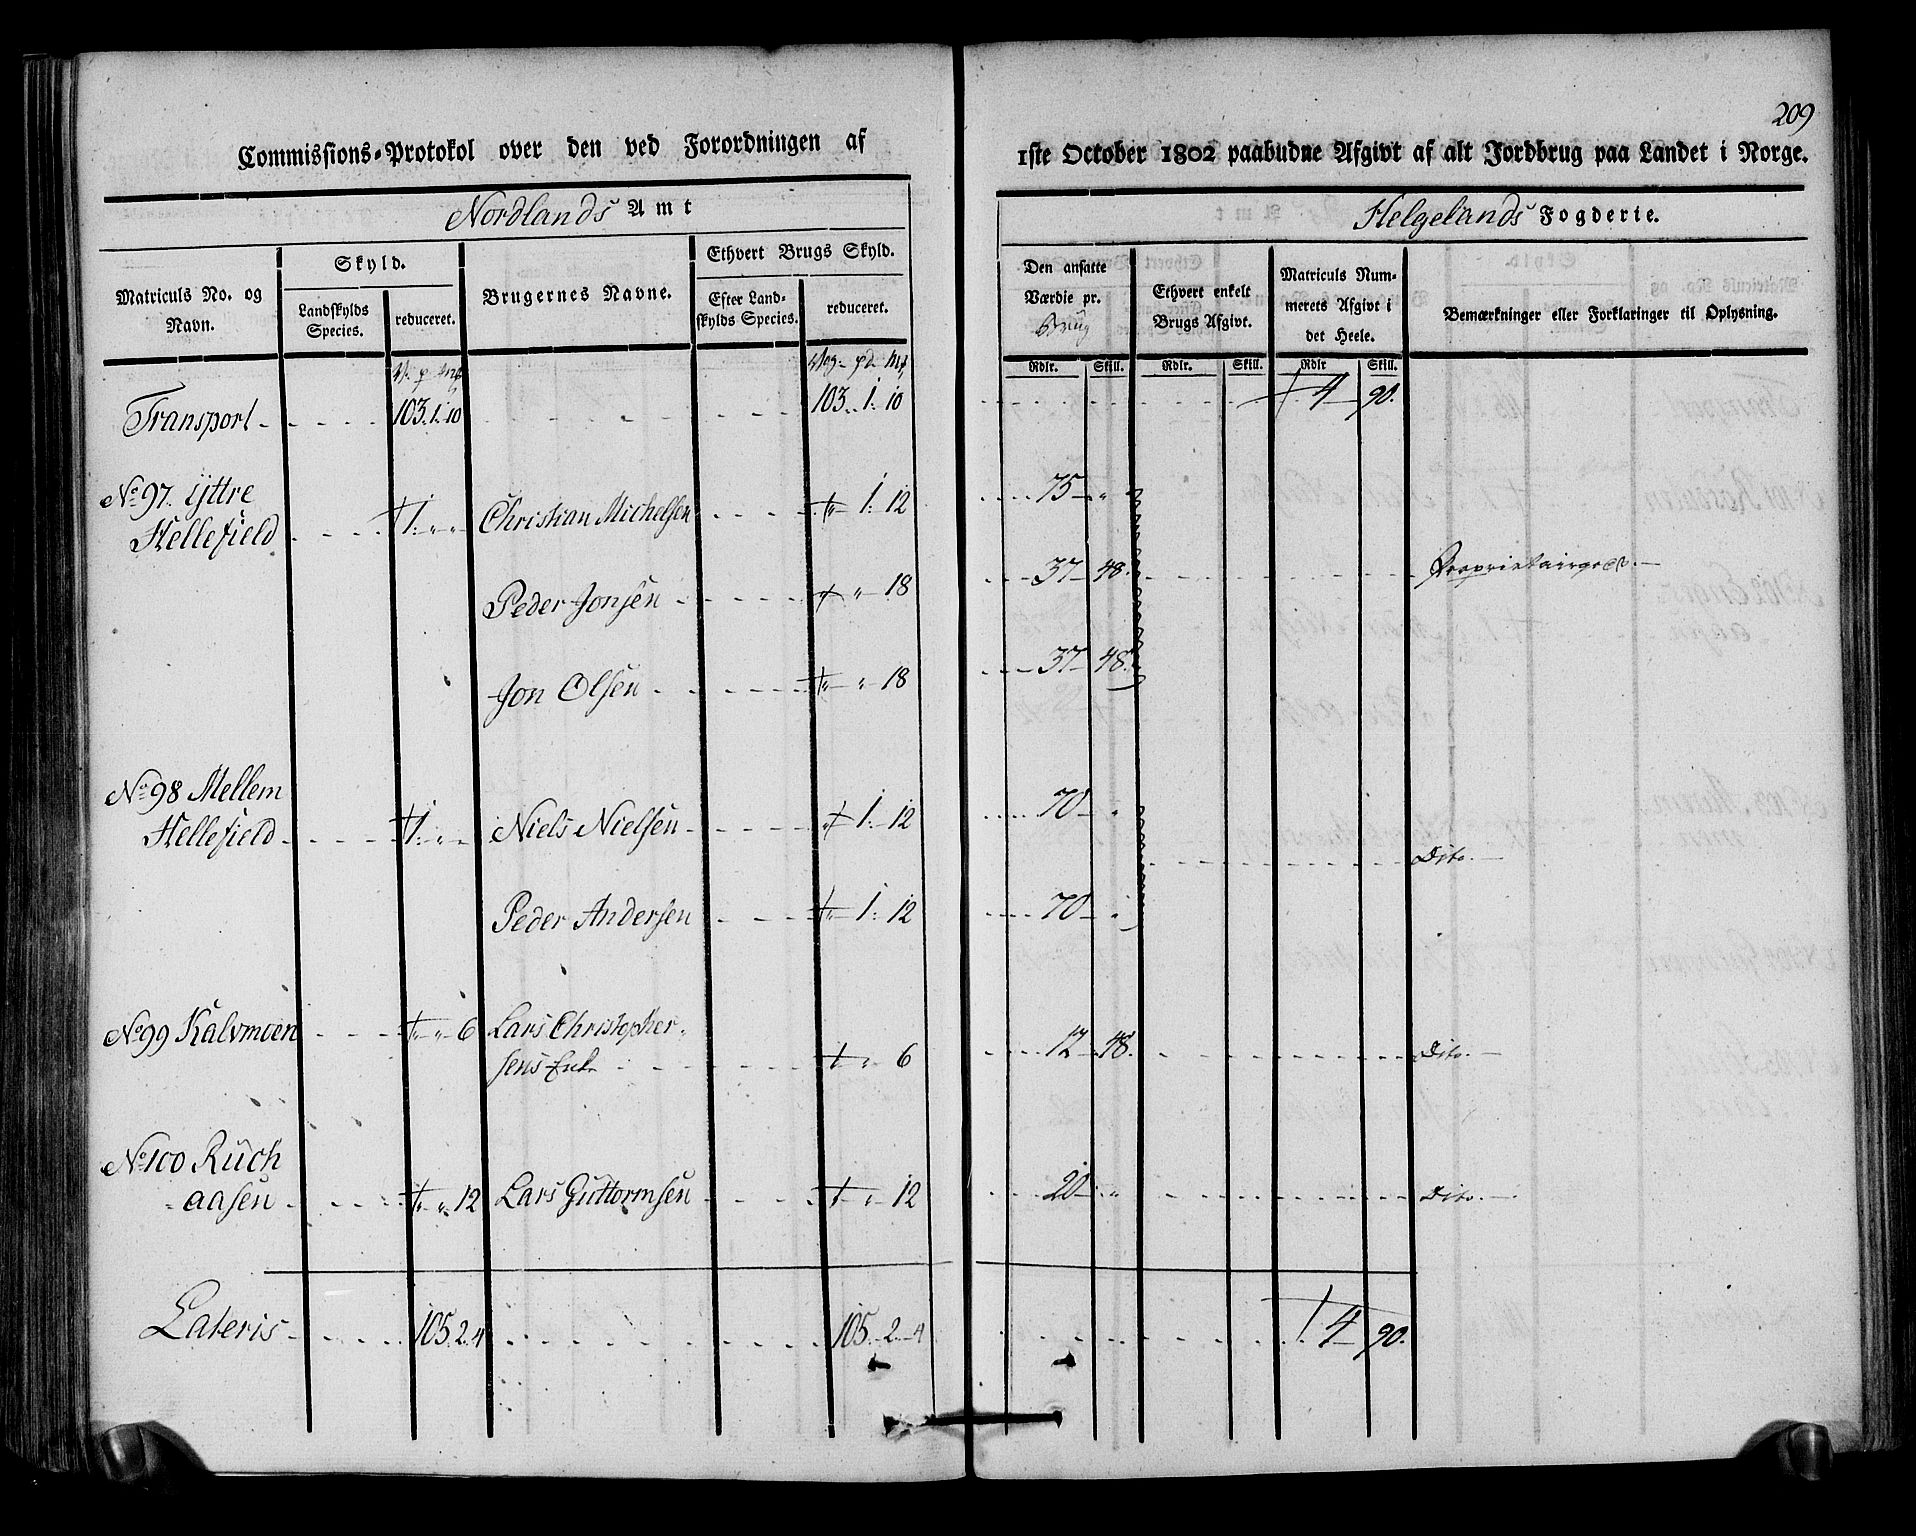 209
Commissions-Protokol over den ved Forordningen af
1ste October 1802 paabudne Afgivt af alt Jordbrug paa Landet i Norge.
Nordlands Amt
Helgelands Fogderie.
Matriculs No. og Navn.
Skyld.
Landskylds Species.
reduceret.
Brugernes Navne.
Ethvert Brugs Skyld.
Efter Landskylds Species.
reduceret.
Den ansatte Værdie pr. Brug
Ethvert enkelt Brugs Afgivt.
Matriculs Nummerets Afgivt i det Heele.
Bemærkninger eller Forklaringer til Oplysning.
Rdlr. Skill. Rdlr. Skill. Rdlr Skill.
Transport 103. 1. 10 103. 1. 10 4 90.
No 97. Yttre
Hellefield 1. " " Christian Michelsen " 1. 12 75 "
Peder Jonsen " " 18 37 48. Proprietairgods.
Jon Olsen " " 18 37 48.
No 98 Mellem
Hellefield 1. " " Niels Nielsen " 1. 12 70 "
Dito.
Peder Andersen " 1. 12 70 "
No 99 Kalvmoen " " 6 Lars Christopher-
sens Enke " 6 12 48. Dito.
No 100 Ruch
aasen " " 12 Lars Guttormsen " 12 20 " Dito.
Lateris 105. 2. 4 105. 2. 4 4 90.